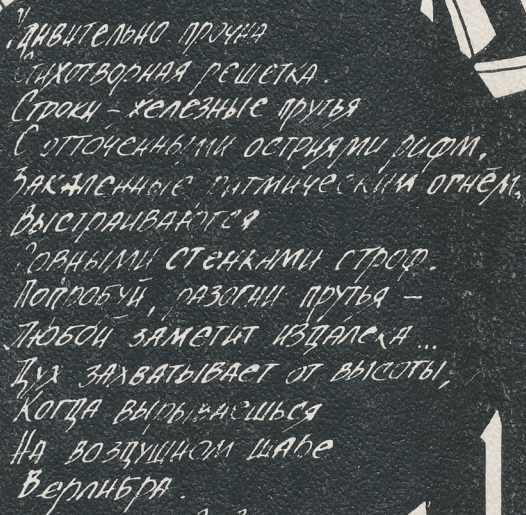 Удивительно прочна
Стихотворная решетка.
Строки – железные прутья
С отточенными остриями рифм,
Закаленные ритмическим огнём,
Выстраиваются
Ровными стенками строф.
Попробуй, разогни прутья –
Любой заметит издалека...
Дух захватывает от высоты,
Когда вырываешься
На воздушном шаре
Верлибра.